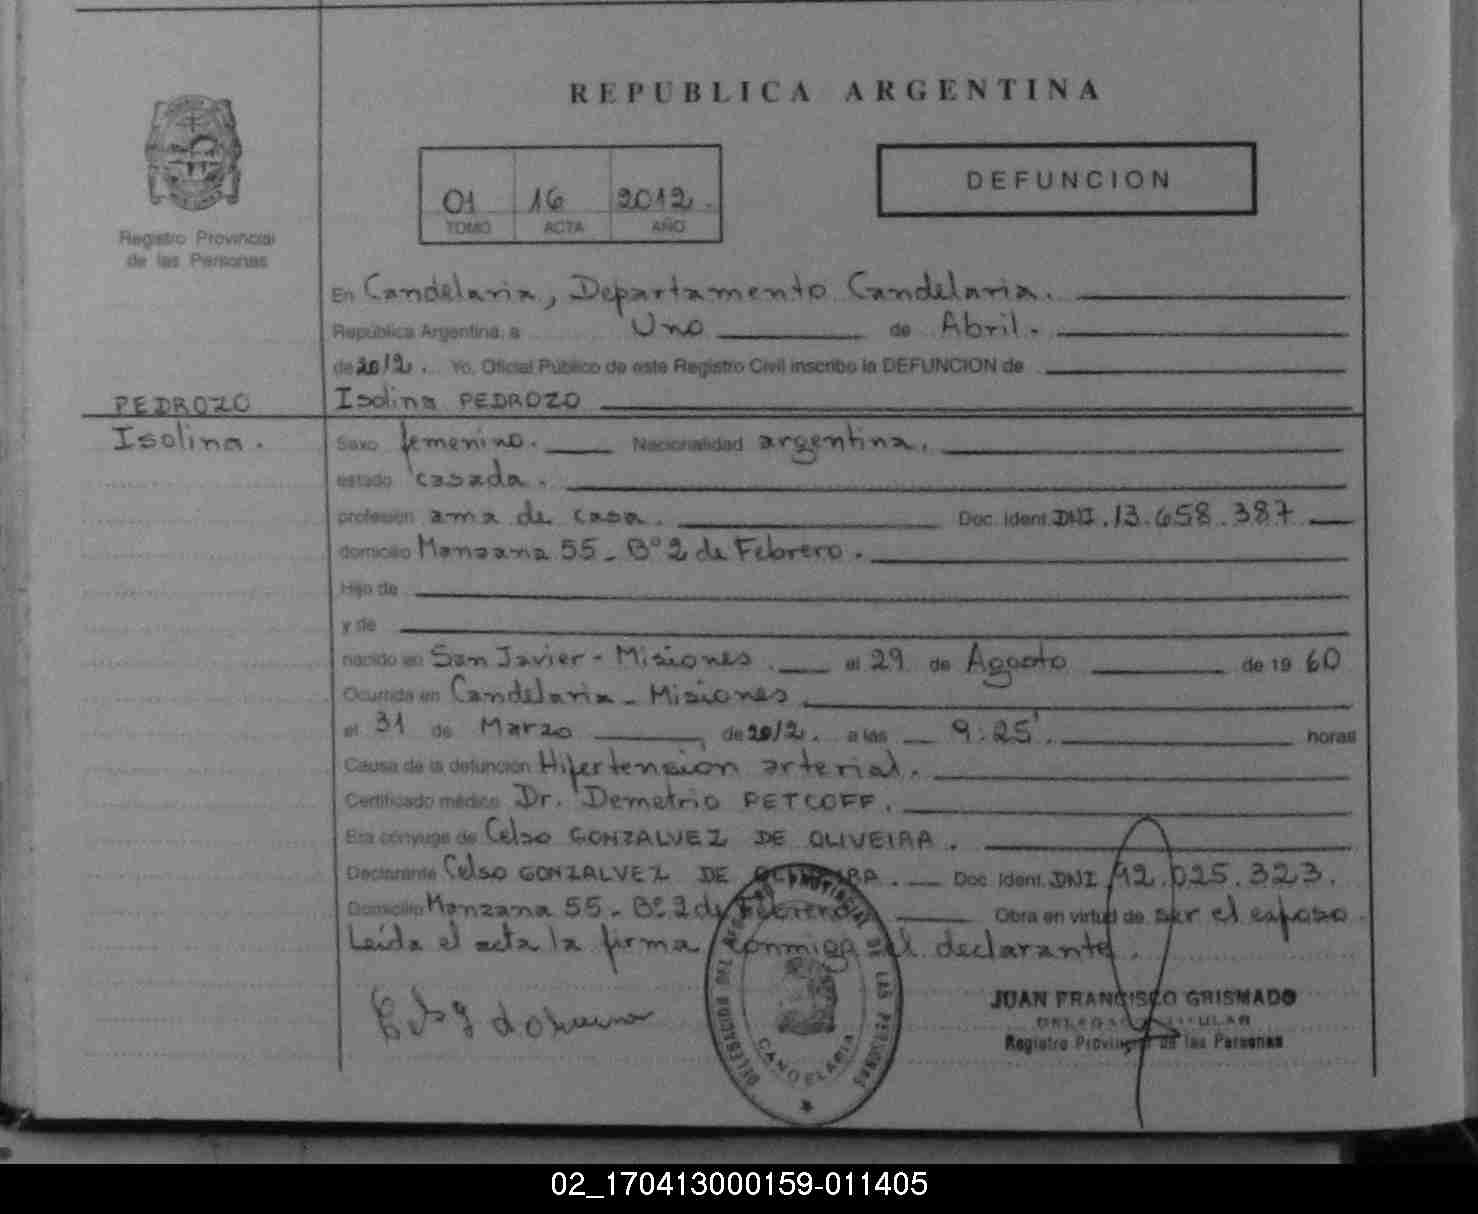 REPUBLICA ARGENTINA
DEFUNCION
01 16 2012.
TOMO ACTA AÑO
Registro Provincial
de las Personas
En Candelaria, Departamento Candelaria.
República Argentina, a Uno de Abril.
de 2012. Yo, Oficial Público de este Registro Civil inscribo la DEFUNCION de
PEDROZO Isolina PEDROZO
Isolina. Sexo femenino. Nacionalidad argentina.
estado casada.
profesión ama de casa. Doc. Ident. DNI. 13.658.387
domicilio Manzana 55 - Bº 2 de Febrero.
Hijo de
y de
nacido en San Javier - Misiones. el 29 de Agosto de 19 60
Ocurrida en Candelaria - Misiones
el 31 de Marzo de 2012. a las 9:25'. horas
Causa de la defunción Hipertensión arterial.
Certificado médico Dr. Demetrio PETCOFF.
Era cónyuge de Celso GONZALVEZ DE OLIVEIRA.
Declarante Celso GONZALVEZ DE OLIVEIRA. Doc. Ident. DNI 92.025.323.
Domicilio Manzana 55 - Bº 2 de Febrero Obra en virtud de ser el esposo.
Leída el acta la firma conmigo el declarante.
JUAN FRANCISCO GRISMADO
DELEGADO TITULAR
Registro Provincial de las Personas
REGISTRO PROVINCIAL DE LAS PERSONAS
DELEGACION
CANDELARIA
02_170413000159-011405